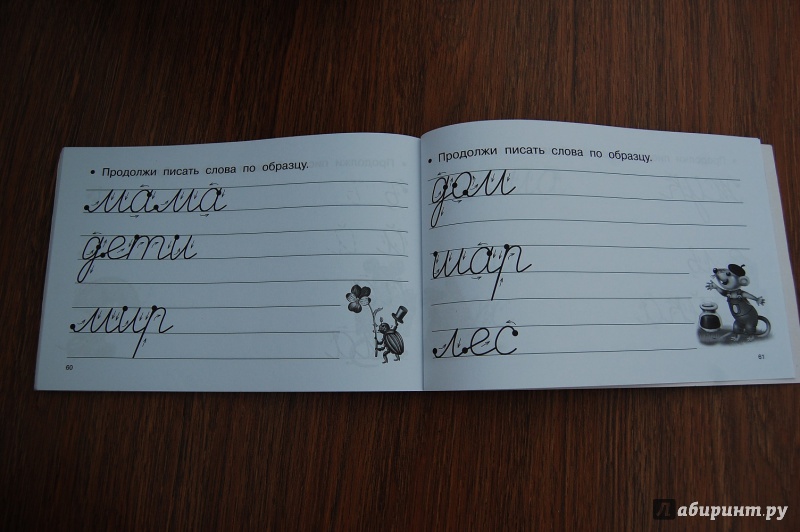 • Продолжи писать слова по образцу.
мама
дети
мир
60
• Продолжи писать слова по образцу.
дом
шар
лес
61
Лабиринт.ру